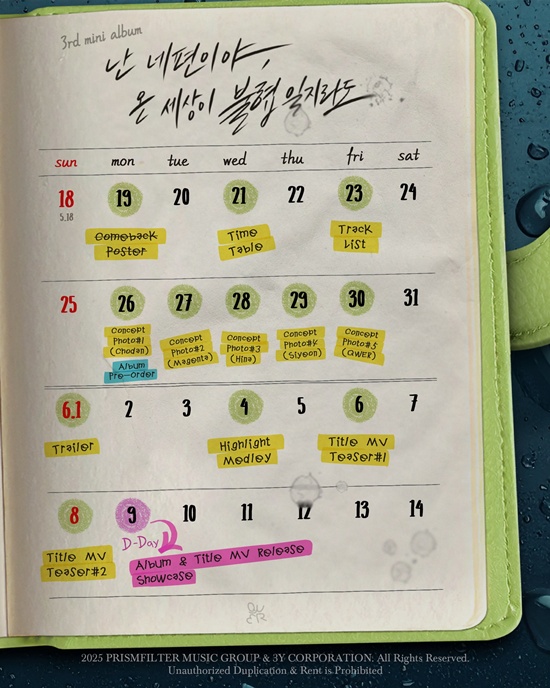 3rd mini album
난 네편이야,
온 세상이 불협일지라도
sun mon tue wed thu fri sat
18 19 20 21 22 23 24
5.18
Comeback
Poster
Time
Table
Track
List
25 26 27 28 29 30 31
Concept
Photo#1
(Chodan)
Album
Pre-Order
Concept
Photo#2
(Magenta)
Concept
Photo#3
(Hina)
Concept
Photo#4
(Siyeon)
Concept
Photo#5
(QWER)
6.1 2 3 4 5 6 7
Trailer
Highlight
Medley
Title MV
Teaser#1
8 9 10 11 12 13 14
Title MV
Teaser#2
D-Day
Album & Title MV Release
Showcase
QW
ER
2025 PRISMFILTER MUSIC GROUP & 3Y CORPORATION: All Rights Reserved.
Unauthorized Duplication & Rent is Prohibited